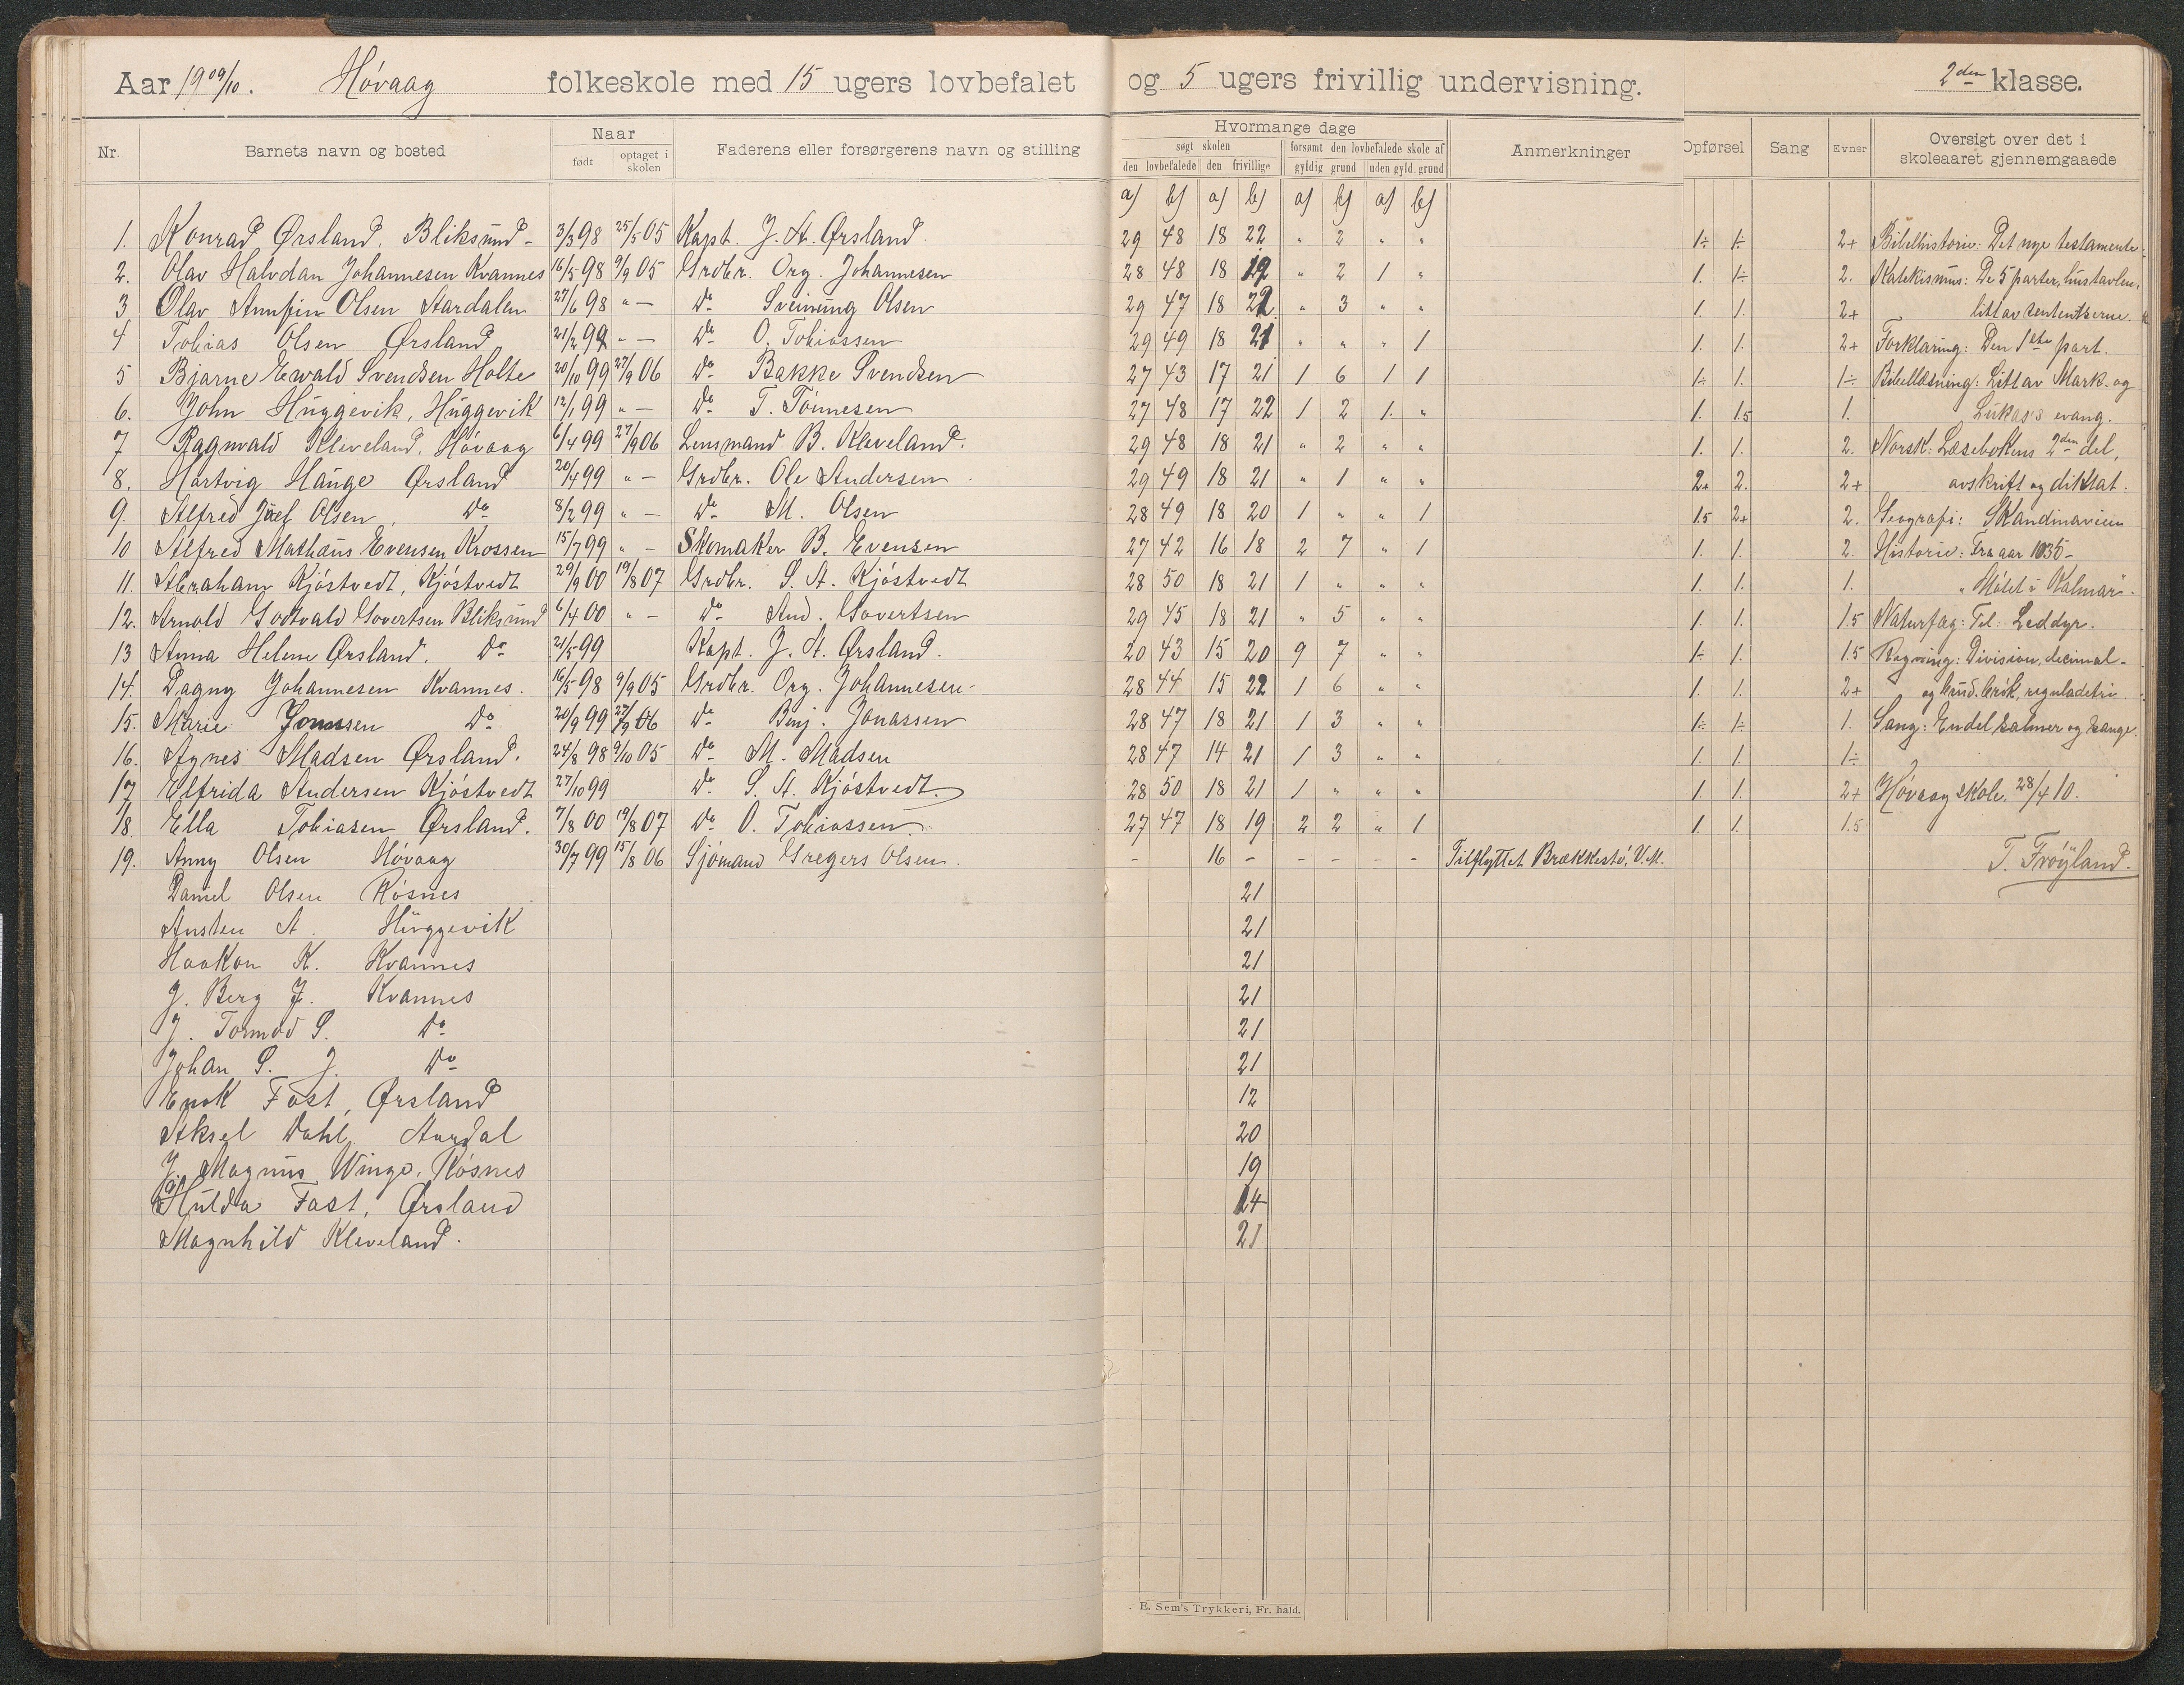 Aar 1909/10. Høvaag folkeskole med 15 ugers lovbefalet og 5 ugers frivillig undervisning. 2den klasse.
Nr. Barnets navn og bosted Naar født optaget i skolen Faderens eller forsørgerens navn og stilling Hvormange dage søgt skolen den lovbefalede den frivillige forsømt den lovbefalede skole af gyldig grund uden gyld. grund Anmerkninger Opførsel Sang Evner Oversigt over det i skoleaaret gjennemgaaede
a) b) a) b) a) b) a) b)
1. Konrad Ørsland, Bliksund 3/3 98 25/5 05 Kapt. J. A. Ørsland. 29 48 18 22 " 2 " " 1÷ 1÷ 2+ Bibelhistorie: Det nye testamente.
2. Olav Halvdan Johannesen Kvannes 16/5 98 9/9 05 Grdbr. Org. Johannesen 28 48 18 19 " 2 1 " 1. 1÷ 2. Katekismus: De 5 parter, hustavlen,
3 Olav Arnfin Olsen Aardalen 27/6 98 " — Do Sveinung Olsen 29 47 18 22 " 3 " " 1. 1. 2+ litt av sententserne.
4 Tobias Olsen Ørsland 21/2 99 " — Do O. Tobiassen 29 49 18 21 " " " 1 1. 1. 2+ Forklaring: Den 1ste part.
5 Bjarne Ewald Svendsen Holte 20/10 99 27/9 06 Do Bakke Svendsen 27 43 17 21 1 6 1 1 1÷ 1. 1÷ Bibellæsning: Litt av Mark. og
6. John Huggevik, Huggevik 12/1 99 " — Do T. Tönnesen 27 48 17 22 1 2 1. " 1. 1.5 1. Lukas's evang.
7 Ragnvald Kleveland, Høvaag 6/4 99 27/9 06 Lensmand B. Kleveland. 29 48 18 21 " 2 " " 1. 1. 2. Norsk: Læsebokens 2den del,
8. Hartvig Hauge Ørsland 20/4 99 " — Grdbr. Ole Andersen 29 49 18 21 " 1 " " 2+ 2. 2+ avskrift og diktat.
9. Alfred Juel Olsen, Do 8/2 99 " — Do M. Olsen 28 49 18 20 1 " " 1 1.5 2+ 2. Geografi: Skandinavien
10 Alfred Mathæus Evensen Krossen 15/7 99 " — Skomaker B. Evensen 27 42 16 18 2 7 " 1 1. 1. 2. Historie: Fra aar 1035 —
11. Abraham Kjöstvedt, Kjöstvedt 29/9 00 19/8 07 Grdbr. S. A. Kjöstvedt 28 50 18 21 1 " " " 1. 1. 1. "Mötet i Kalmar".
12. Arnold Godtvald Govertsen Bliksund 6/4 00 " — Do And. Govertsen 29 45 18 21 " 5 " " 1. 1. 1.5 Naturfag: Til Leddyr.
13 Anna Helene Ørsland, Do 21/5 99 Kapt. J. A. Ørsland. 20 43 15 20 9 7 " " 1÷ 1. 1.5 Regning: Division, decimal-
14. Dagny Johannesen Kvannes. 16/5 98 9/9 05 Grdbr. Org. Johannesen 28 44 15 22 1 6 " " 1. 1. 2+ og brud.brök, reguladetri
15. Marie Jonassen Do 20/9 99 27/9 06 Do Benj. Jonassen 28 47 18 21 1 3 " " 1÷ 1÷ 1. Sang: Endel salmer og sange.
16. Agnes Madsen Ørsland. 24/8 98 9/10 05 Do M. Madsen 28 47 14 21 1 3 " " 1. 1. 1÷
17 Elfrida Andersen Kjöstvedt 27/10 99 Do S. A. Kjöstvedt. 28 50 18 21 1 " " " 1. 1. 2+ Høvaag skole, 28/4 10.
18. Ella Tobiasen Ørsland. 7/8 00 19/8 07 Do O. Tobiassen 27 47 18 19 2 2 " 1 1. 1. 1.5
19. Anny Olsen Høvaag 30/7 99 15/8 06 Sjömand Gregers Olsen. - 16 - - - - - Tilflyttet Brækkestö, V. M. T. Fröyland.
Daniel Olsen Røsnes 21
Austen A. Huggevik 21
Haakon K. Kvannes 21
J. Berg J. Kvannes 21
J. Tormod S. Do 21
Johan S. J. Do 21
Enok Fost, Ørsland 12
Aksel Dahl, Aardal 20
J. Magnus Winge, Røsnes 19
Hulda Fost, Ørsland 14
Magnhild Kleveland. 21
E. Sem's Trykkeri, Fr. hald.